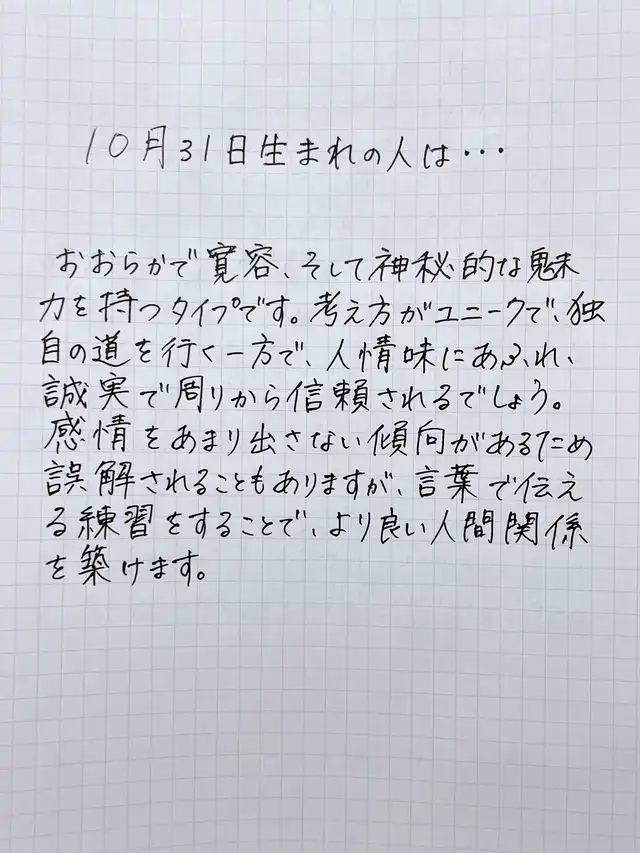 10月31日生まれの人は・・・
おおらかで寛容、そして神秘的な魅
力を持つタイプです。考え方がユニークで、独
自の道を行く一方で、人情味にあふれ、
誠実で周りから信頼されるでしょう。
感情をあまり出さない傾向があるため
誤解されることもありますが、言葉で伝え
る練習をすることで、より良い人間関係
を築けます。